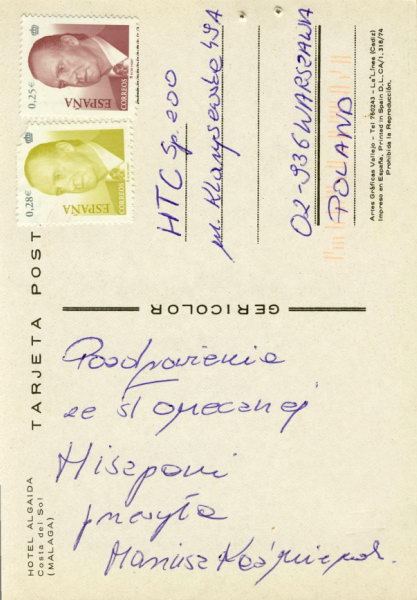 0.25€
ESPAÑA
CORREOS
0.28€
ESPAÑA
CORREOS
TARJETA POST
HTC Sp. zoo
02-936 WARSZAWA
POLAND
Artes Gráficas Vallejo - Tel 760243 - La Línea (Cadiz)
Impreso en España. Printed in Spain D. L. CA/1. 318/74
Prohibida la Reproducción.
GERICOLOR
Pozdrowienia
ze słonecznej
Hiszpanii
przesyła
Mariusz
HOTEL ALGAIDA
Costa del Sol
(MALAGA)